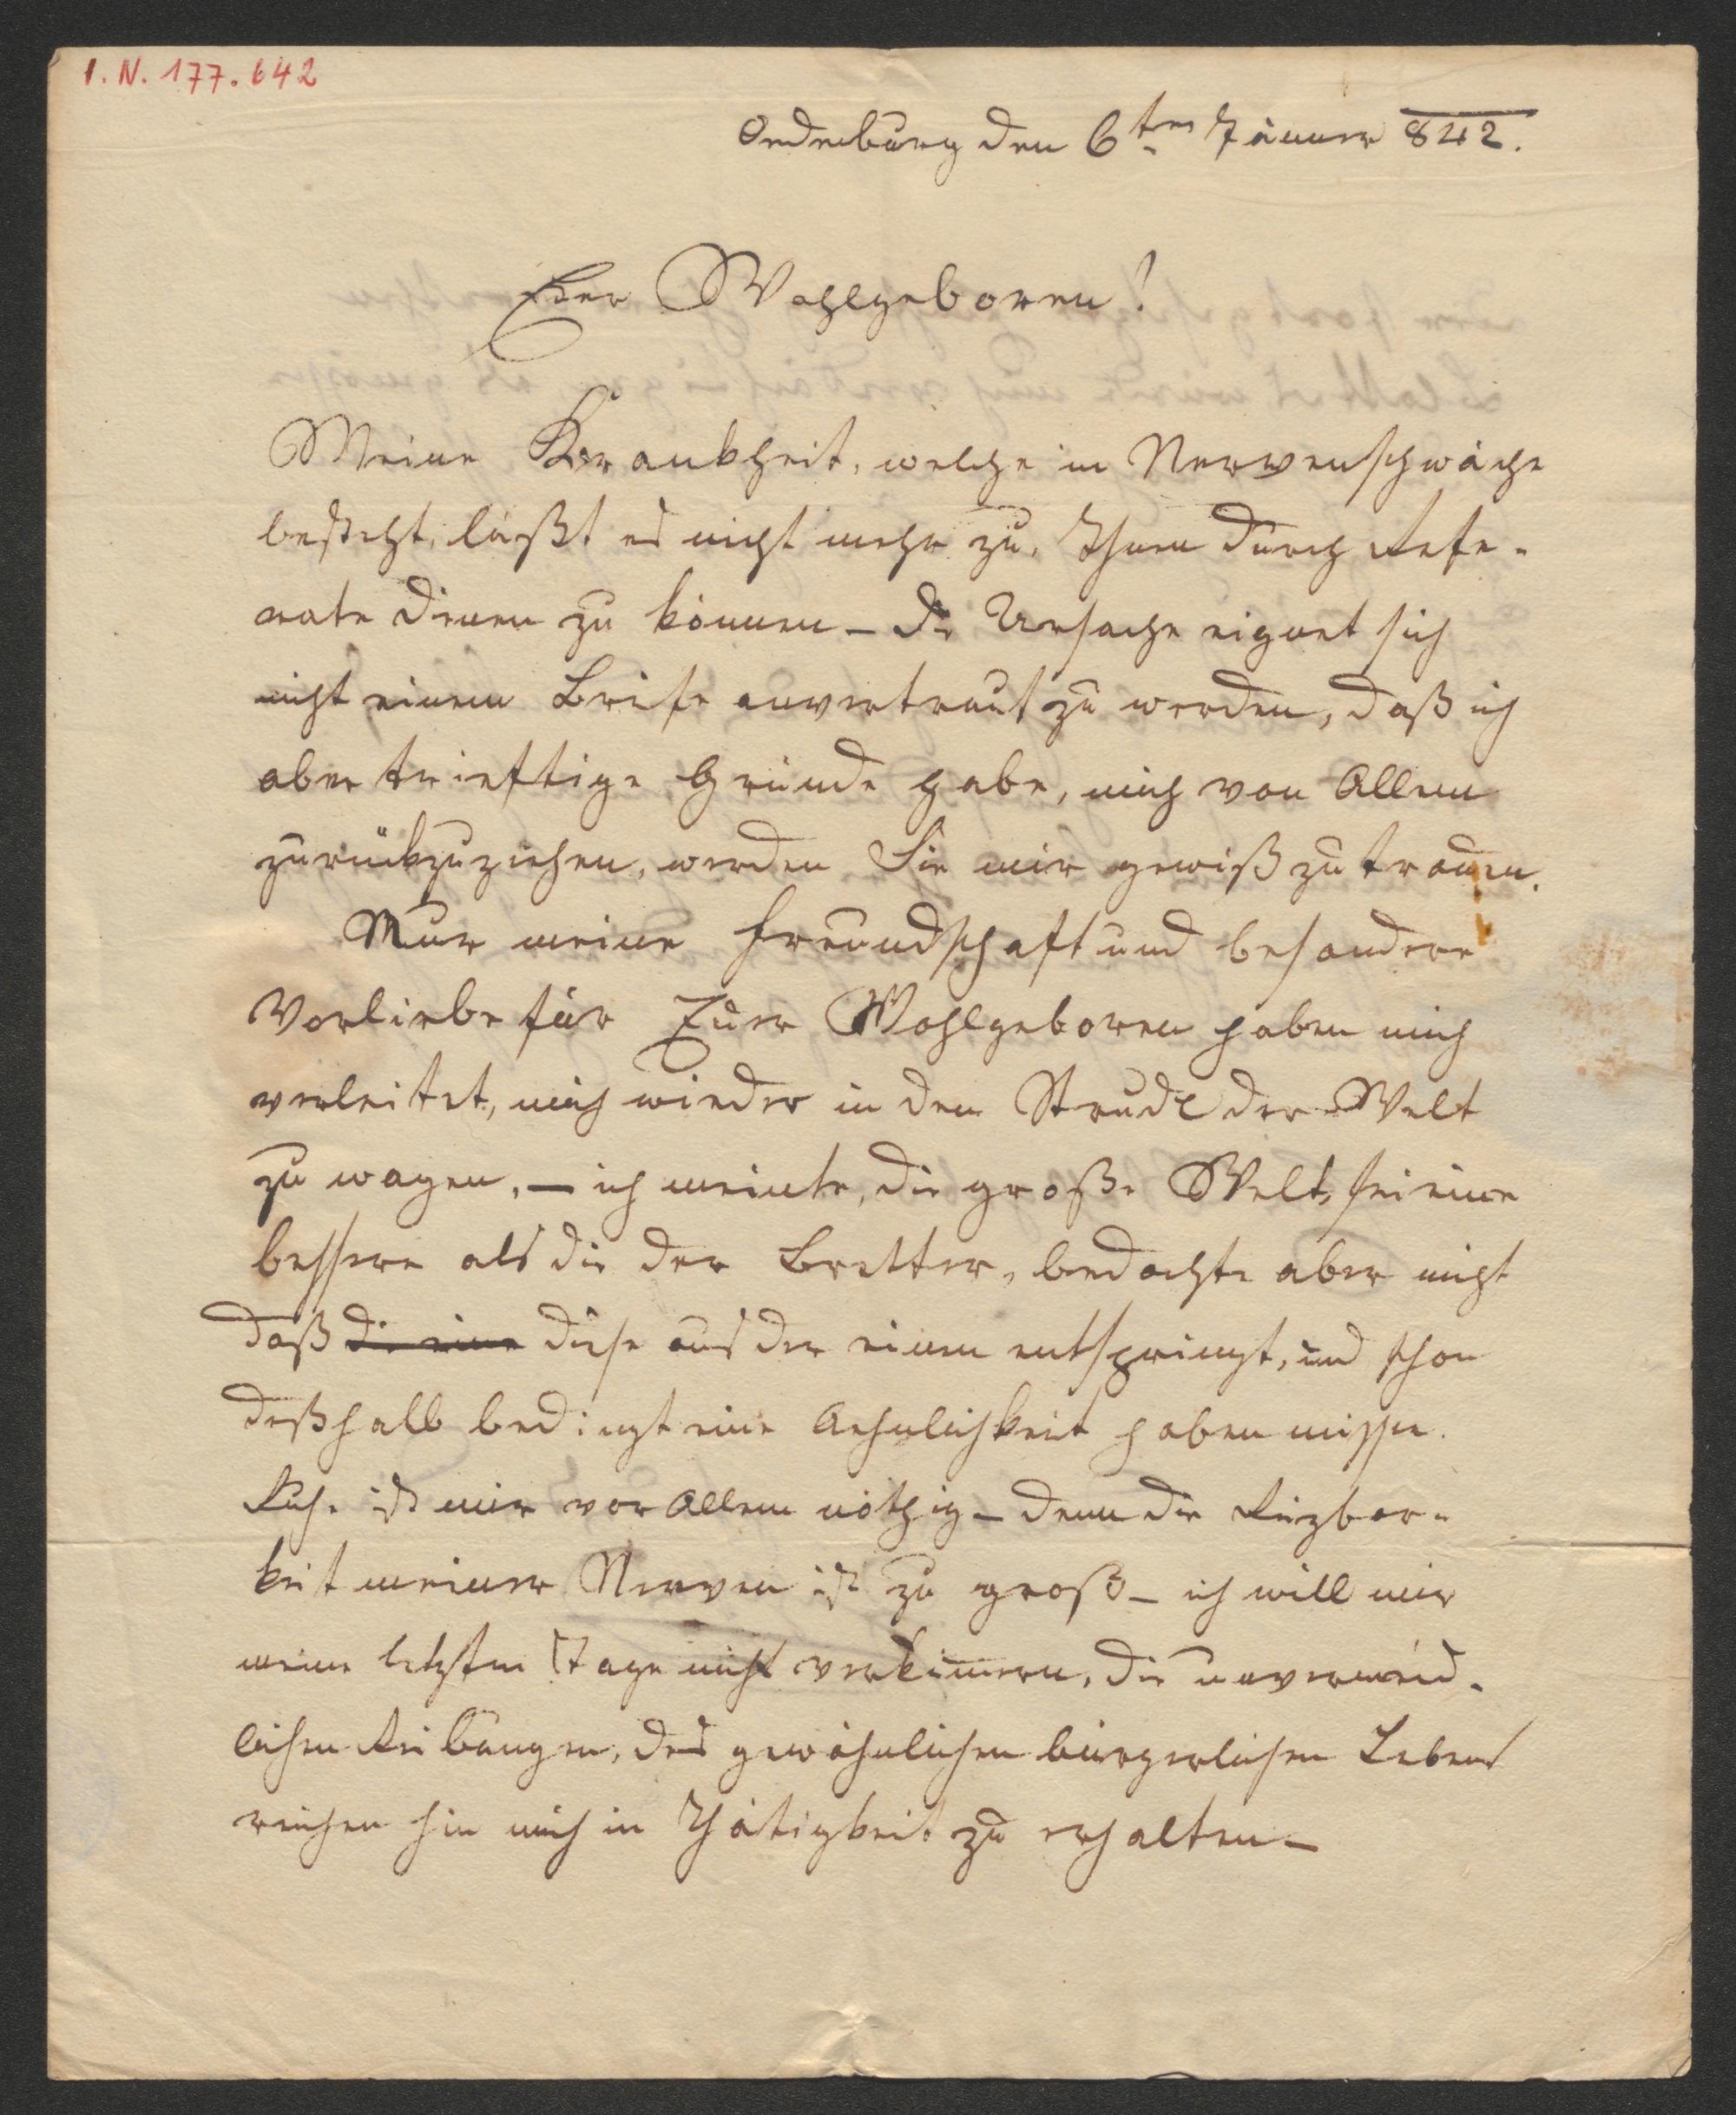 I. N. 177.642
Oedenburg den 6ten Jänner 842.
Euer Wohlgeboren!
Meine Krankheit, welche in Nervenschwäche
besteht, läßt es nicht mehr zu, Ihnen durch Refe-
rate dienen zu können – die Ursache eignet sich
nicht einem Briefe anvertraut zu werden, daß ich
aber trieftige Gründe habe, mich von Allem
zurückzuziehen, werden Sie mir gewiß zutrauen.
Nur meine Freundschaft und besondere
Vorliebe für Euer Wohlgeboren haben mich
verleitet, mich wieder in den Strudl der Welt
zu wagen, – ich meinte, die große Welt, sei eine
bessere als die der Bretter, bedachte aber nicht
daß die eine diese aus der einen entspringt, und schon
deßhalb bedingt eine Aehnlichkeit haben müsse.
Ruhe ist mir vor Allem nöthig – denn die Reizbar-
keit meiner Nerven ist zu groß – ich will mir
meine letzten Tage nicht verkümern, die unvermeid-
lichen Reibungen, des gewöhnlichen bürgerlichen Lebens
reichen hin mich in Thätigkeit zu erhalten –